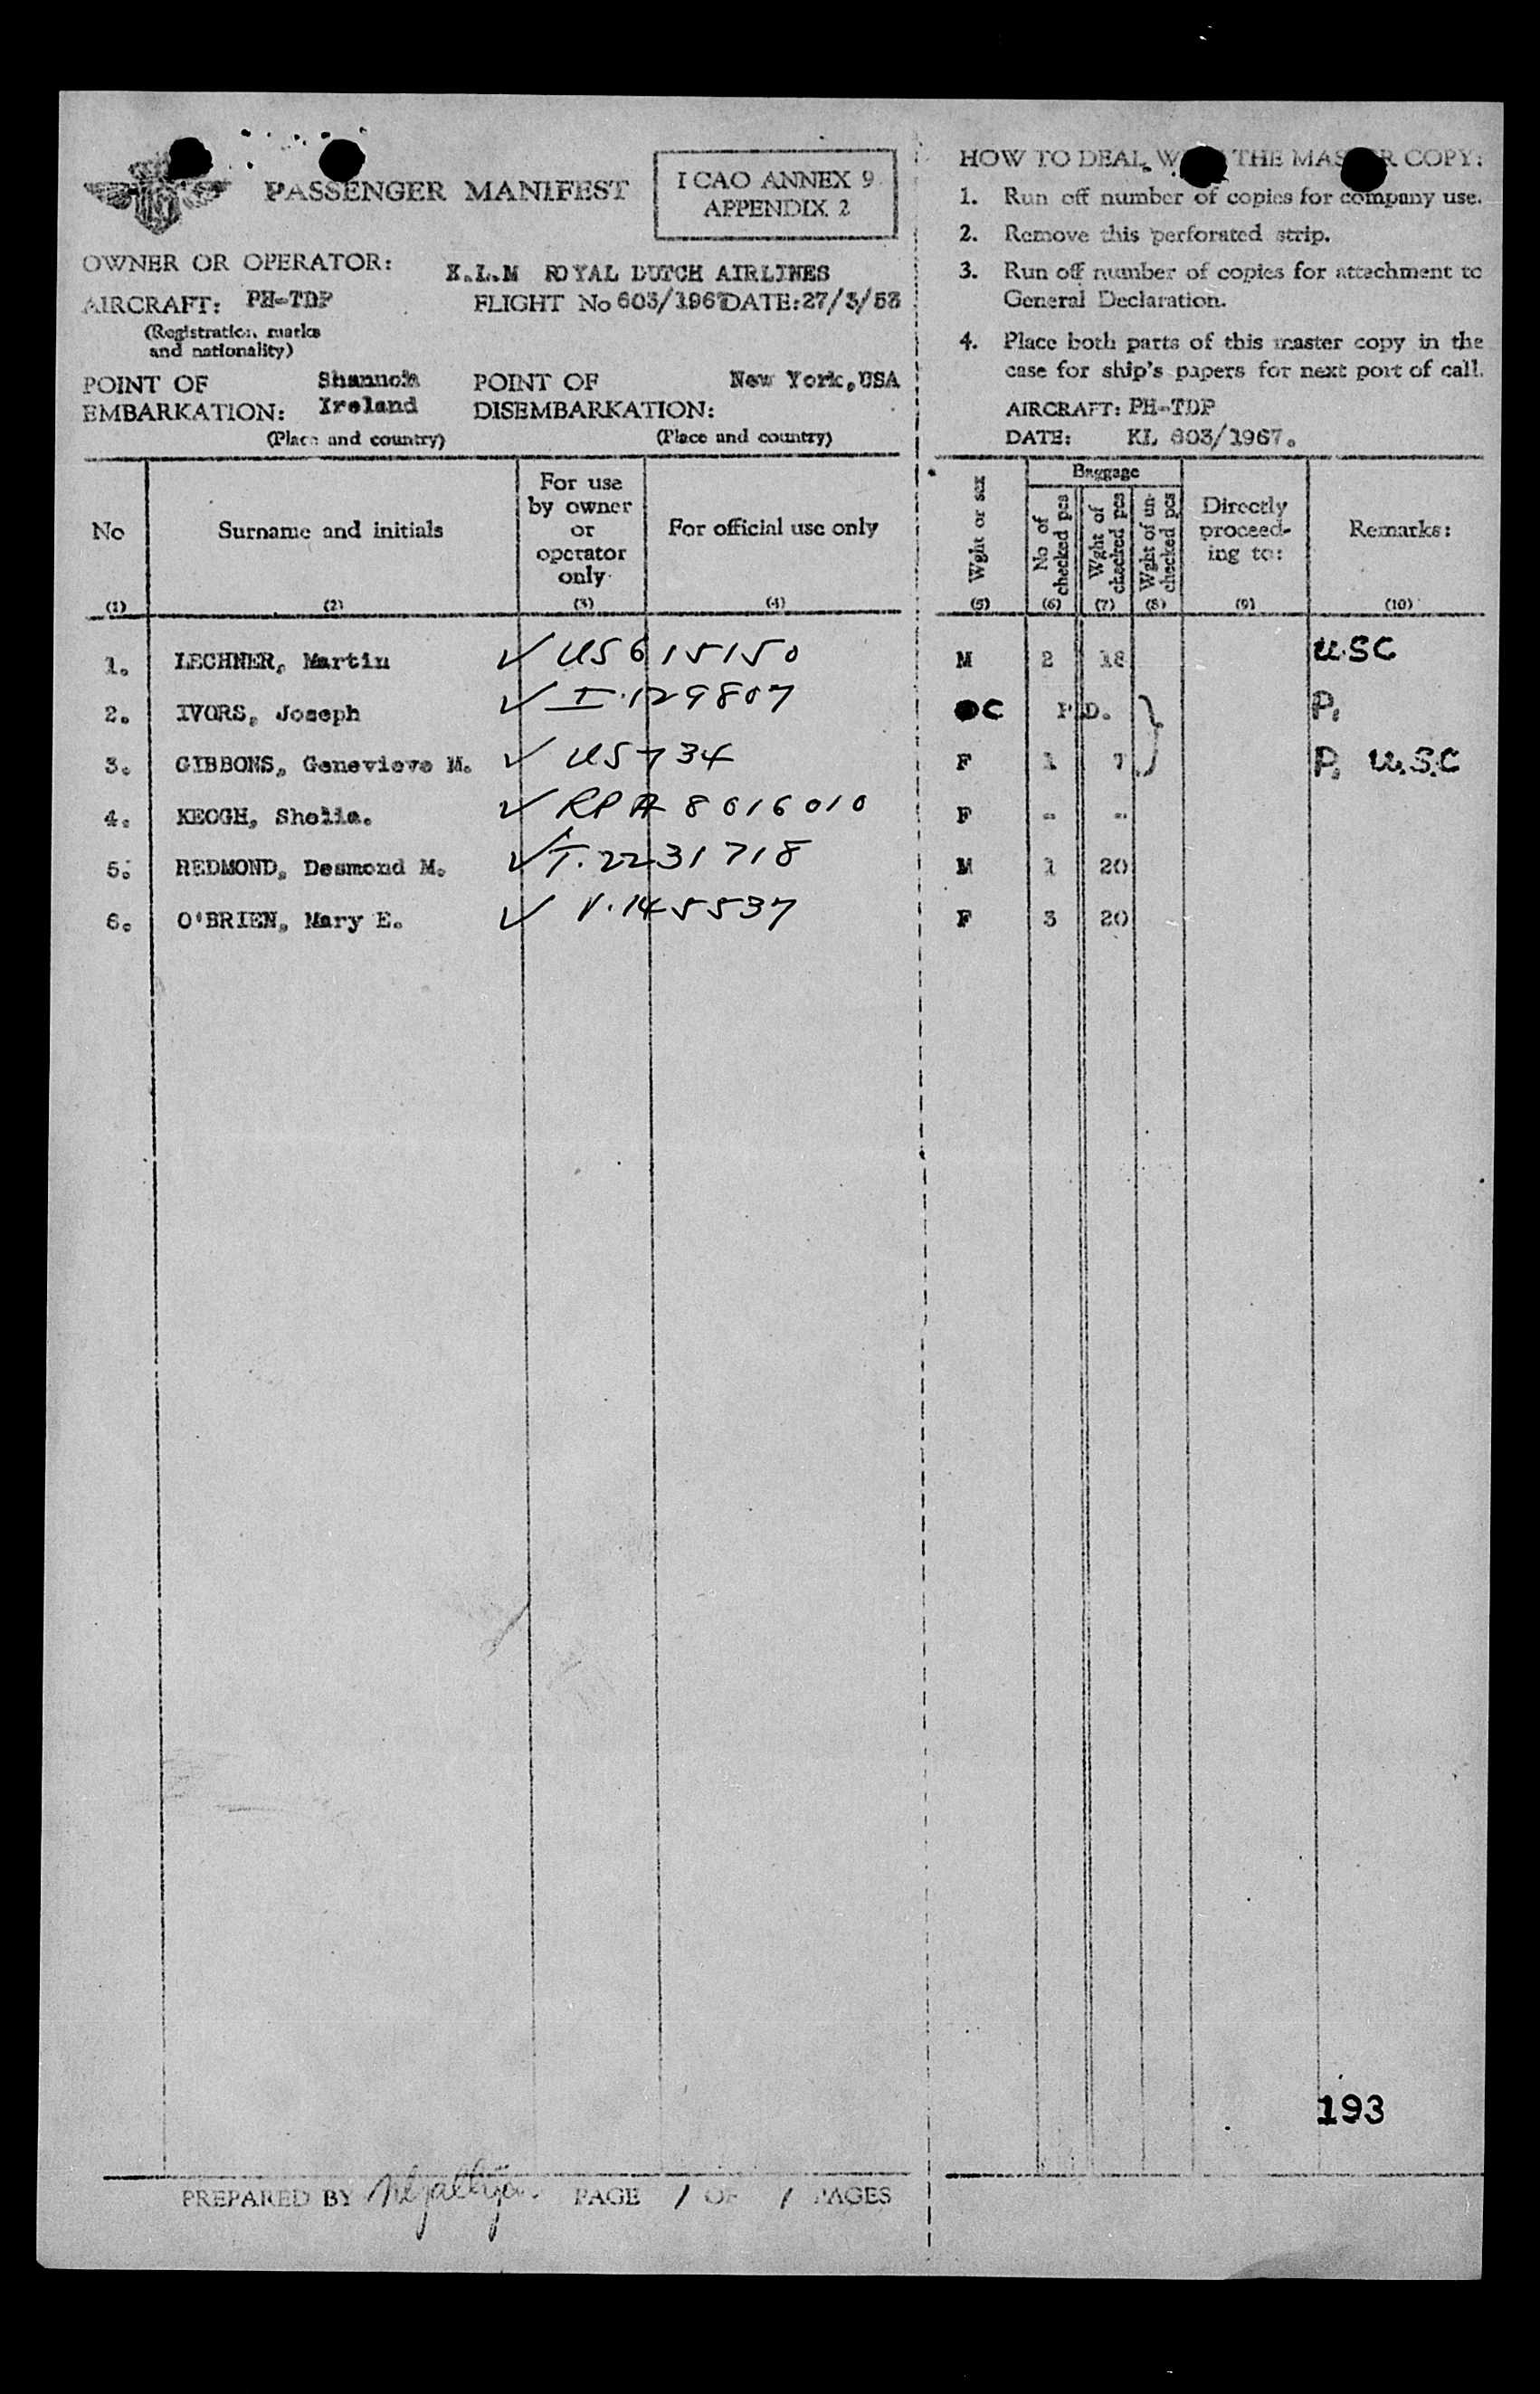 PASSENGER MANIFEST
I CAO ANNEX 9
APPENDIX 2
OWNER OR OPERATOR: K.L.M ROYAL DUTCH AIRLINES
AIRCRAFT: PH-TDP FLIGHT No 603/1967 DATE: 27/3/53
(Registration marks
and nationality)
POINT OF Shannon POINT OF New York, USA
EMBARKATION: Ireland DISEMBARKATION:
(Place and country) (Place and country)
HOW TO DEAL THE COPY:
1. Run off number of copies for company use.
2. Remove this perforated strip.
3. Run off number of copies for attachment to
General Declaration.
4. Place both parts of this master copy in the
case for ship's papers for next port of call.
AIRCRAFT: PH-TDP
DATE: KL 603/1967.
No Surname and initials For use by owner or operator only For official use only Wght or sex Baggage No of checked pcs Wght of checked pcs Wght of un-checked pcs Directly proceed-ing to: Remarks:
(1) (2) (3) (4) (5) (6) (7) (8) (9) (10)
1. LECHNER, Martin ✓ US 615150 M 2 18 U.S.C
2. IVORS, Joseph ✓ I.129807 C F.D. } P.
3. GIBBONS, Genevieve M. ✓ US 734 F 1 7 P. U.S.C
4. KEOGH, Sheila. ✓ RPA 8016010 F - -
5. REDMOND, Desmond M. ✓ T.2231718 M 1 20
6. O'BRIEN, Mary E. ✓ V.145537 F 3 20
193
PREPARED BY PAGE 1 OF 1 PAGES